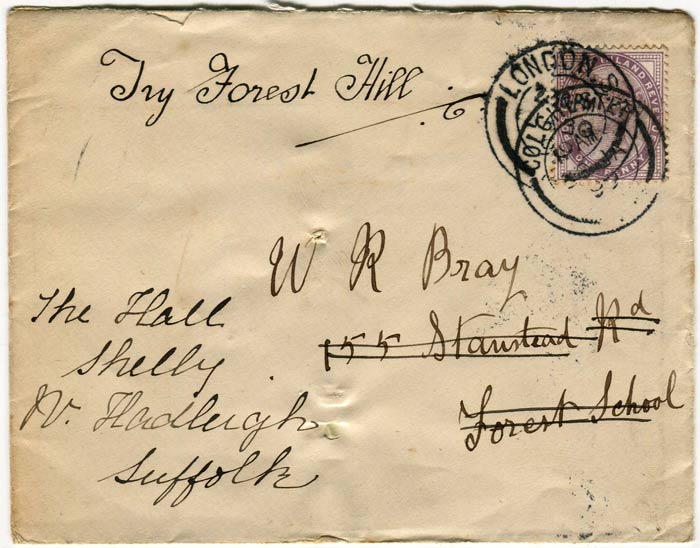 Try Forest Hill
LONDON. S.
COLCHESTER
LAND REVENUE
PENNY
W R Bray
155 Stanstead Rd
Forest School
The Hall
Shelly
Nr. Hadleigh
Suffolk